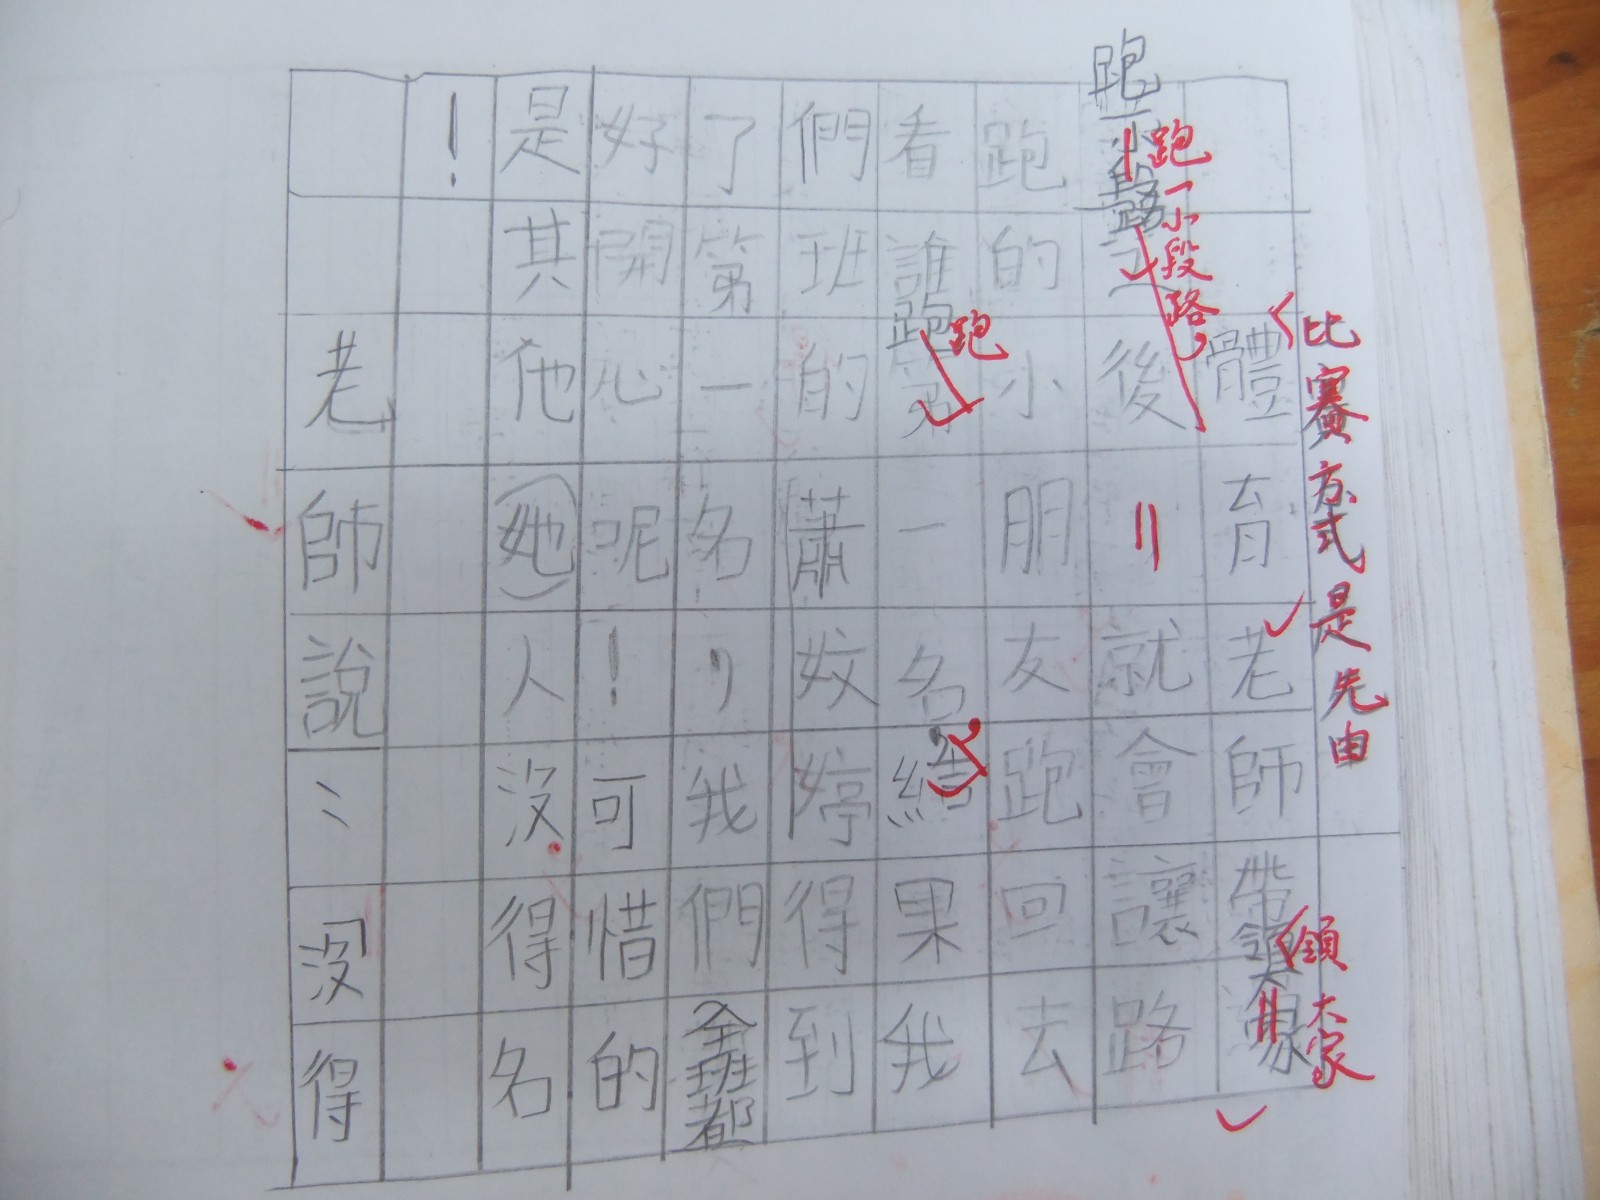 比賽方式是先由
體育老師帶領大家
領大家
跑一小段路,
跑一小段路之後就會讓路
跑的小朋友跑回去
看誰跑第一名,結果我
跑
們班的蕭妏婷得到
了第一名,我們全班都
好開心呢!可惜的
是其他(她)人沒得名
!
老師說:「沒得